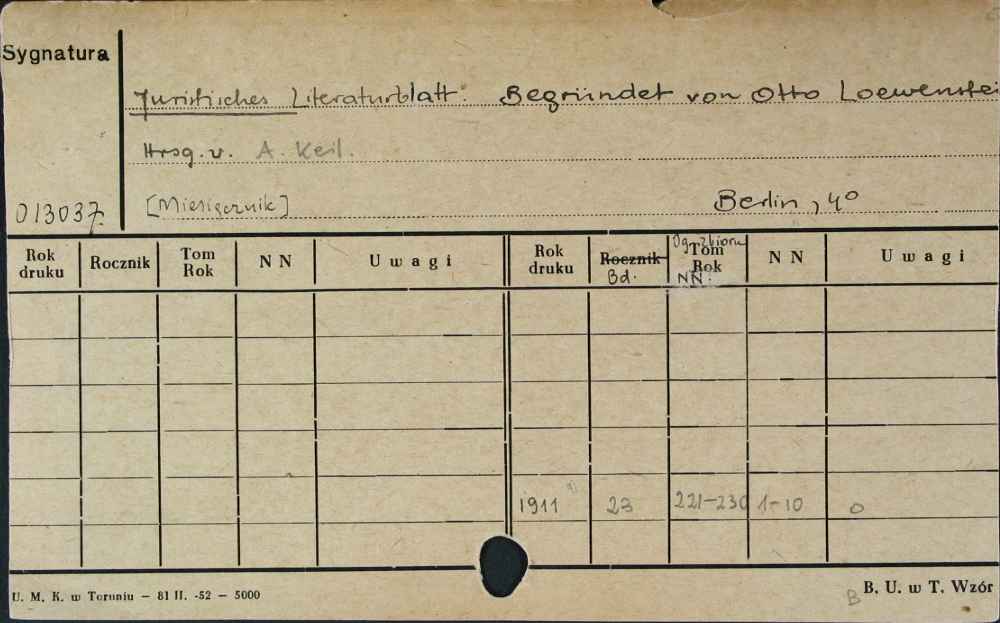 Sygnatura
Juristisches Literaturblatt. Begründet von Otto Loewenstei
Hrsg. v. A. Keil.
013037 [Miesięcznik] Berlin, 4°
Rok druku Rocznik Tom Rok N N Uwagi Rok druku Rocznik Bd. Og. zbioru Tom Rok NN. N N Uwagi
1911 23 221-230 1-10 0
U. M. K. w Toruniu — 81 II. -52 — 5000 B B. U. w T. Wzór